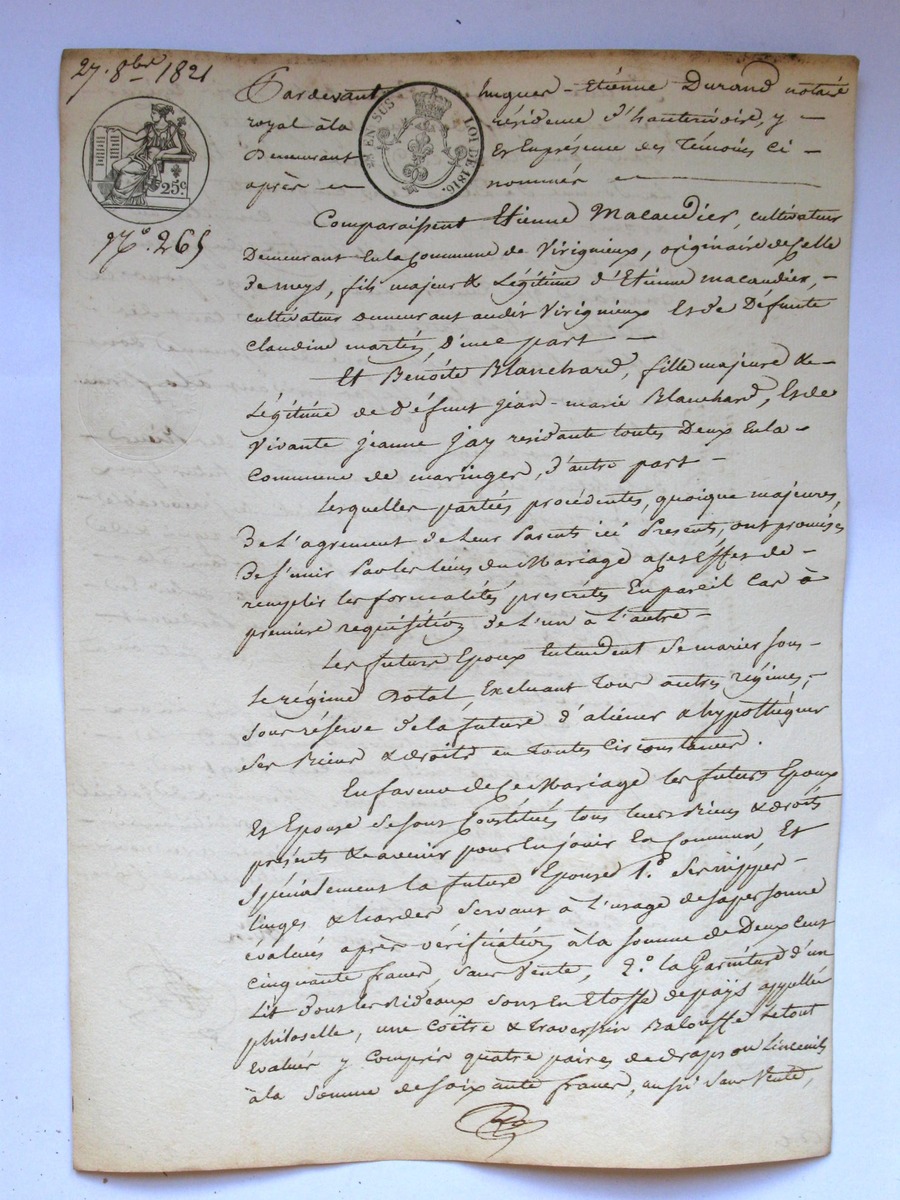 27. 8bre 1821
25c
EN SUS LOI DE 1816.
No. 265
Pardevant hugues-Etienne Durand notaire
royal à la résidence d'hauterivoire, y
Demeurant Et En présence des Témoins ci
après nommés
Comparaissent Etienne Macaudier, cultivateur
Demeurant En la Commune de Virigneux, originaire de Celle
de meys, fils majeur & Légitime d'Etienne macaudier,
cultivateur demeurant audit Virigneux Et de Défunte
Claudine d'une part
Et Benoite Blanchard, fille majeure &
Légitime de Défunt jean-marie Blanchard, Et de
Vivante jeanne jay résidante toutes Deux En la
Commune de maringes, d'autre part
Lesquelles parties procédentes, quoique majeures,
De L'agrement de Leur Parents ici Présents, ont promises
De S'unir Par les liens du Mariage a ses Effets de
remplir les formalités prescrites En pareil Cas à
première requisition de l'un à l'autre
Les futurs Epoux Entendent Se marier sous
Le régime Dotal, Excluant Tous autres régimes,
sous réserve de la future d'aliéner & hypothéquer
Ses Biens & droits en Toutes Circonstances.
En faveur de Ce Mariage les futurs Epoux
Et Epouse Se sont Constitués tous leurs Biens & droits
présents & avenir pour En jouir En Commun Et
Spécialement la future Epouse 1.o Ses nippes
linges & hardes servant à l'usage de sa personne
évalués après vérification à la somme de Deux Cent
Cinquante francs, sans Vente, 2.o la Garniture d'un
Lit dont les Rideaux sont En Etoffe de pays appellée
philoselle, une Coëtre & traversin Balouffe Le tout
Evalués y Compris quatre paires de draps ou Linceuils
à la Somme de soixante francs, aussi sans Vente,